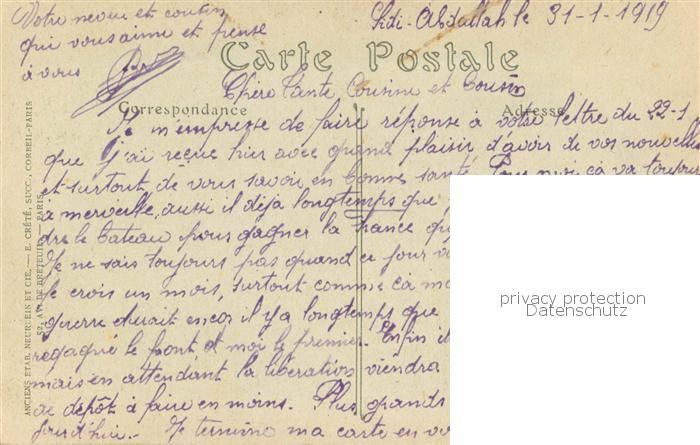 Sidi-Abdallah le 31-1-1919
Votre neveu et cousin
qui vous aime et pense
à vous
Carte Postale
Chère Tante Cousine et Cousin
Correspondance
Adresse
Je m'empresse de faire réponse à votre lettre du 22-1
que j'ai reçue hier avec grand plaisir d'avoir de vos nouvelles
et surtout de vous savoir en bonne santé. Pour moi ça va toujours
à merveille, aussi il déjà longtemps que
dre le bateau pour gagner la France
Je ne sais toujours pas quand ce jour
Je crois un mois, surtout comme ça
guerre durait encor, il y a longtemps que
regagné le front et moi le premier. Enfin il
mais en attendant la libération viendra
de dépôt à faire en moins. Plus grands
Je termine ma carte en vo
ANCIENS ÉTAB. NEURDEIN ET CIE. — E. CRÉTÉ, SUCC., CORBEIL-PARIS
52, AV. DE BRETEUIL — PARIS
privacy protection
Datenschutz